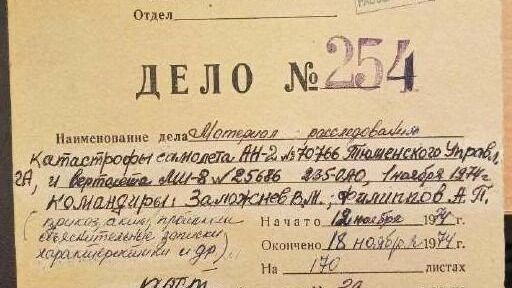 Отдел
ДЕЛО № 254
Наименование дела Материал расследования
катастрофы самолета АН-2 № 70766 Тюменского Управл.
ГА, и вертолета МИ-8 № 25686 1 ноября 1974г
командиры: Заложнев В.М.; Филиппов А.П.
(приказ, акты,
объяснительные записки
характеристики и др)
Начато 12 ноября 1974 г.
Окончено 18 ноября 1974 г.
На 170 листах